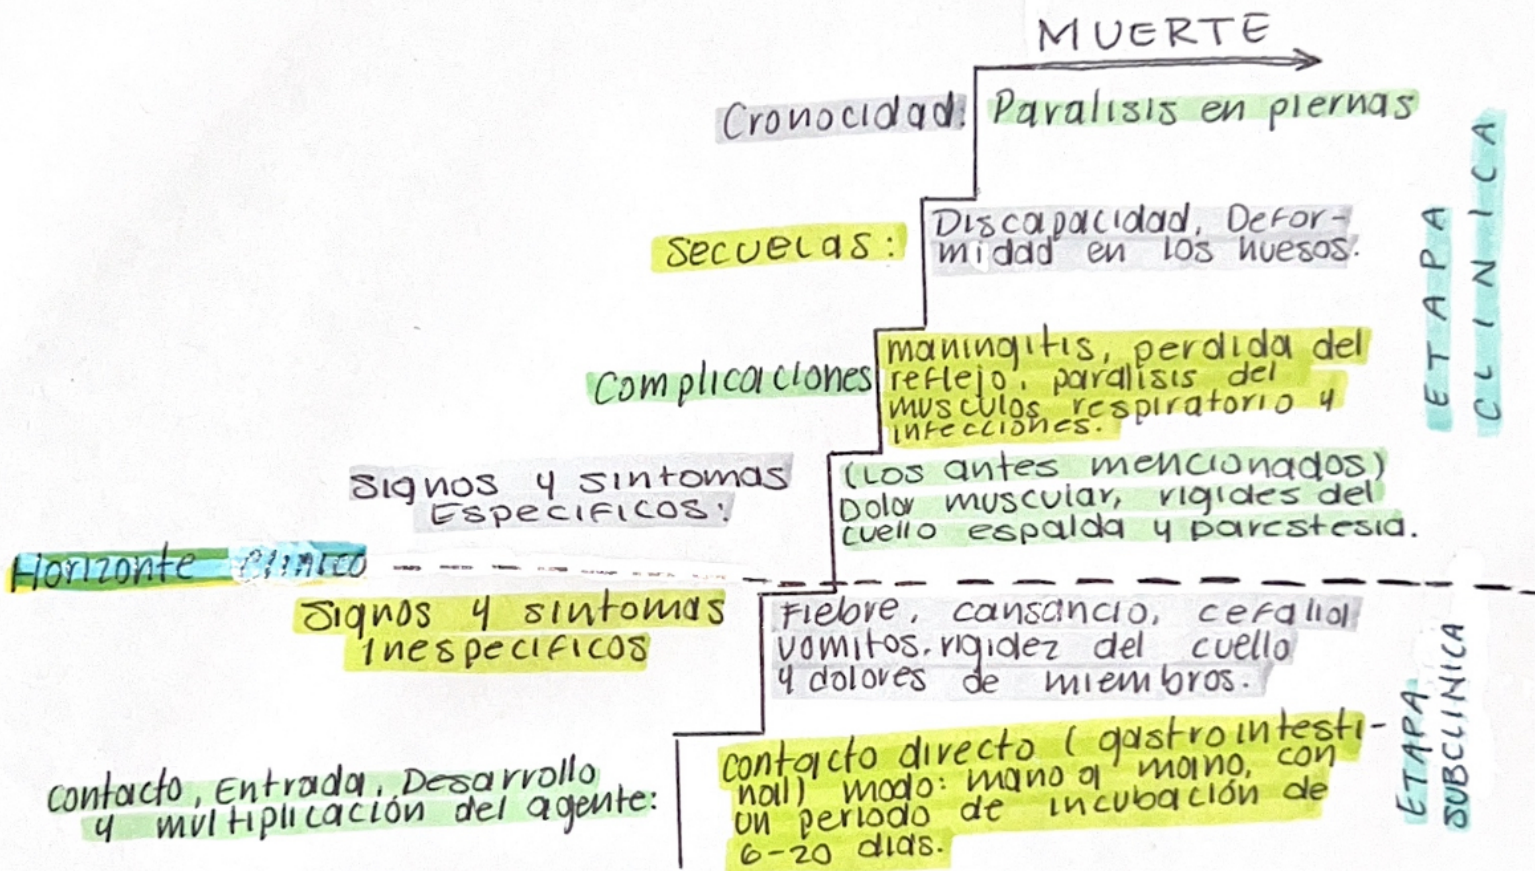 MUERTE
Cronocidad:
Paralisis en piernas
Secuelas:
Discapacidad, Defor-
midad en los huesos.
Complicaciones
maningitis, perdida del
reflejo, paralisis del
musculos respiratorio y
infecciones.
signos y sintomas
Especificos:
(Los antes mencionados)
Dolor muscular, rigides del
cuello espalda y parestesia.
ETAPA
CLINICA
Horizonte Clinico
signos y sintomas
inespecificos
Fiebre, cansancio, cefalia
vomitos, rigidez del cuello
y dolores de miembros.
contacto, Entrada, Desarrollo
y multiplicación del agente:
contacto directo (gastrointesti-
nal) modo: mano a mano, con
un periodo de incubación de
6-20 dias.
ETAPA
SUBCLINICA